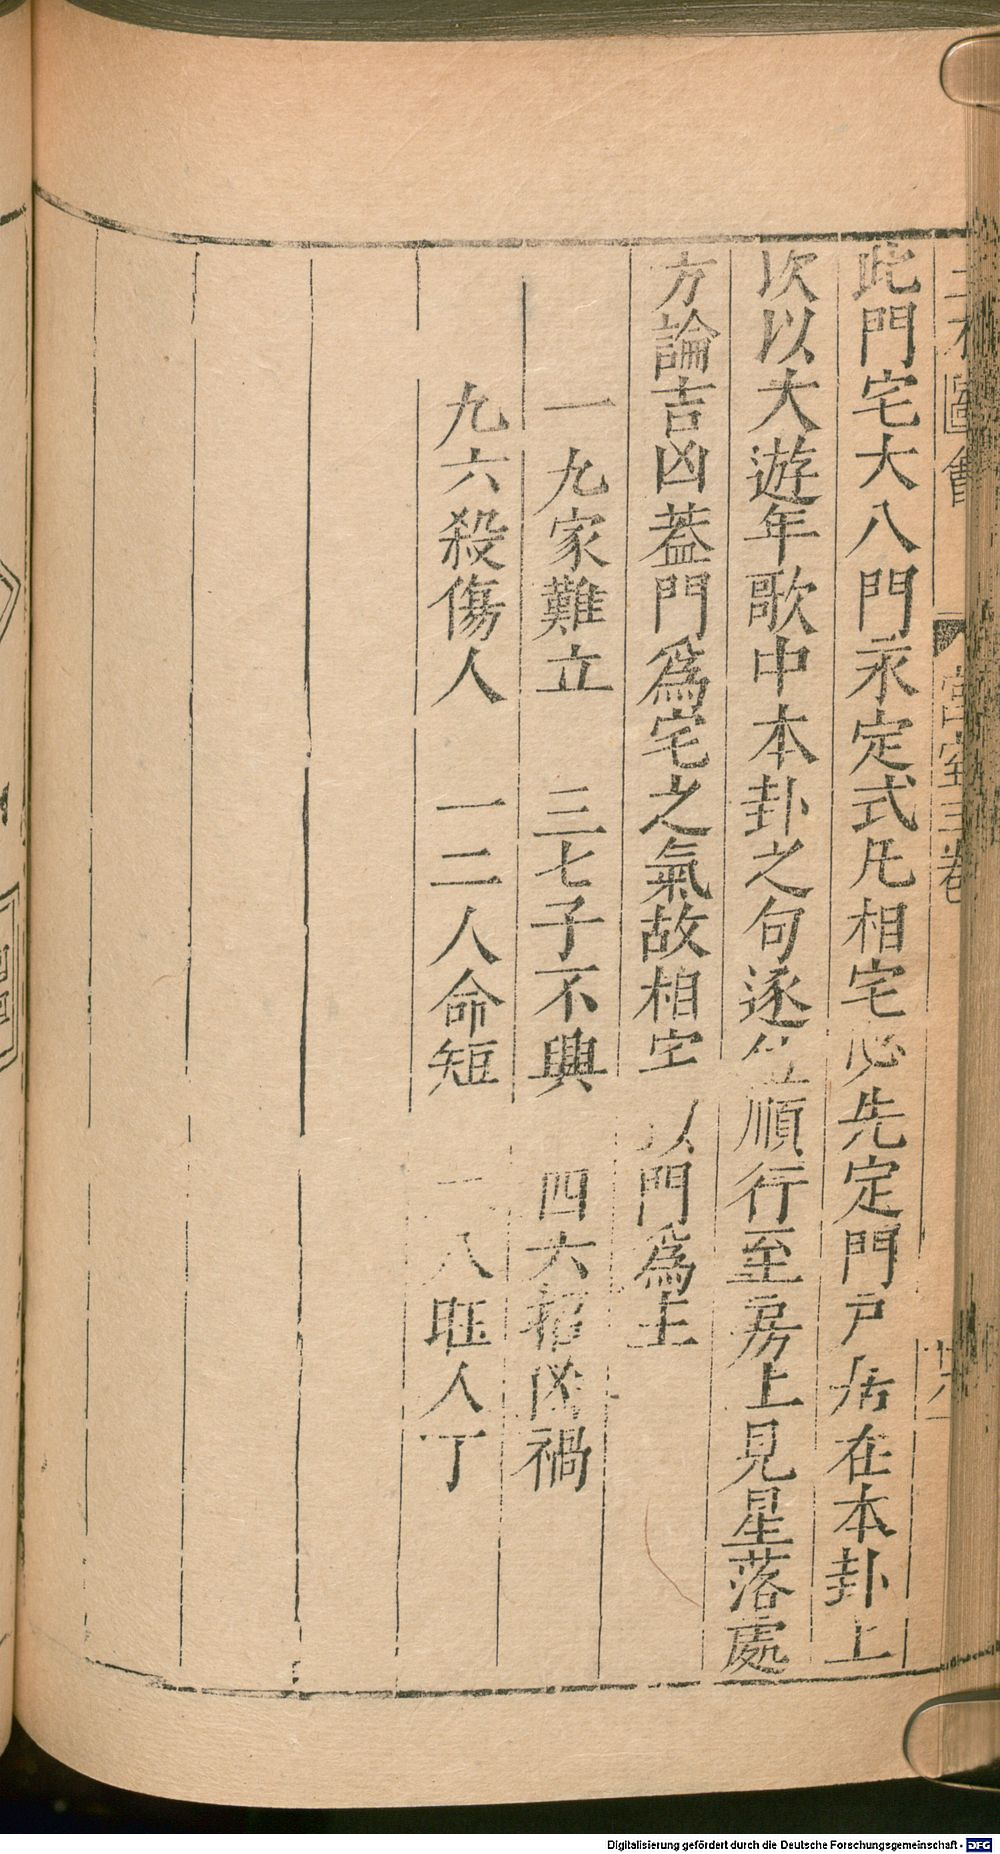 圖會 宫室三卷
此門宅大八門永定式凡相宅必先定門戸居在本卦上
次以大遊年歌中本卦之句逐位順行至房上見星落處
方論吉凶葢門爲宅之氣故相宅以門爲主
一九家難立 三七子不興 四六招凶禍
九六殺傷人 一二人命短 八旺人丁
Digitalisierung gefördert durch die Deutsche Forschungsgemeinschaft - DFG